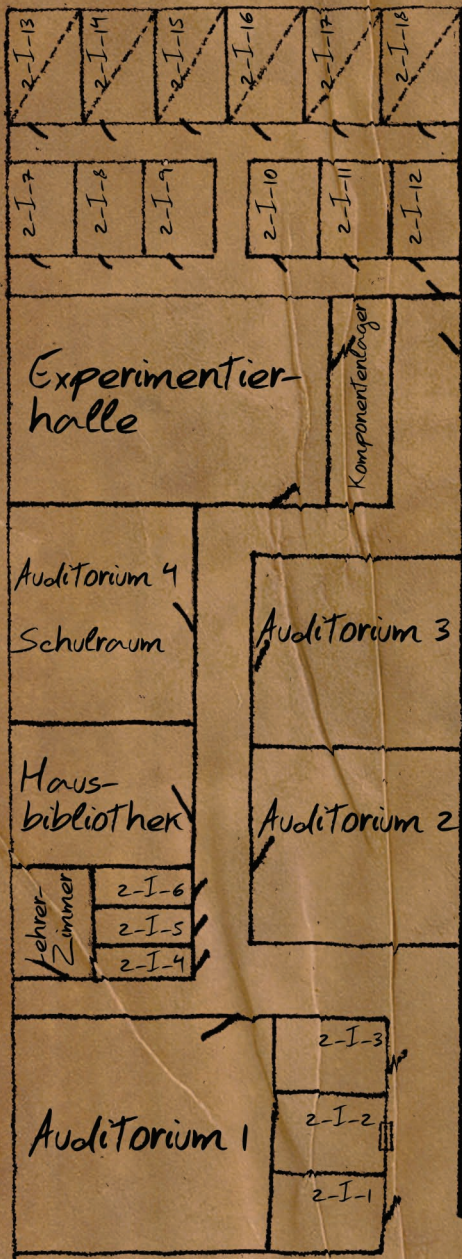 2-I-13
2-I-14
2-I-15
2-I-16
2-I-17
2-I-18
2-I-7
2-I-8
2-I-9
2-I-10
2-I-11
2-I-12
Experimentier-
halle
Komponentenlager
Auditorium 4
Schulraum
Auditorium 3
Haus-
bibliothek
Auditorium 2
Lehrer-
Zimmer
2-I-6
2-I-5
2-I-4
Auditorium 1
2-I-3
2-I-2
2-I-1